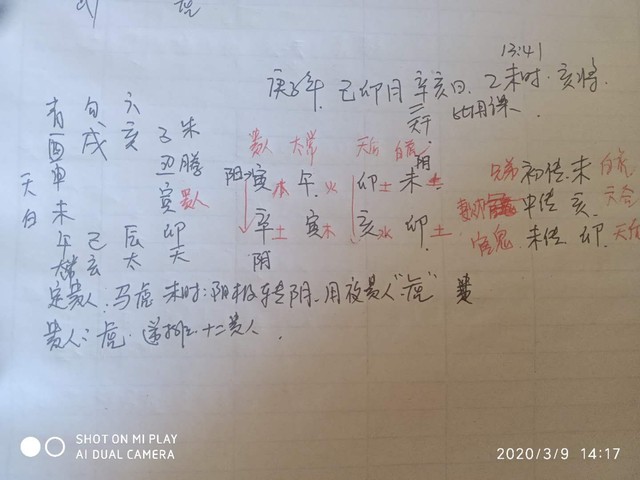 13:41
庚子年 己卯月 辛亥日 乙未时 亥将
比用课
贵人 太常 天后 白虎
阳 寅木 午火 卯土 未土
辛土 寅木 亥水 卯土
阴
兄弟 初传 未 白虎
中传 亥
官鬼 末传 卯 天后
勾 六 朱
酉 戌 亥 子 丑 腾
申 寅 贵人
天 未 卯 天
白 午 己 辰
太常 玄 太
定贵人:马虎 未时:阳极转阴 用夜贵人"虎"
贵人:虎 逆排十二贵人.
SHOT ON MI PLAY
AI DUAL CAMERA
2020/3/9 14:17